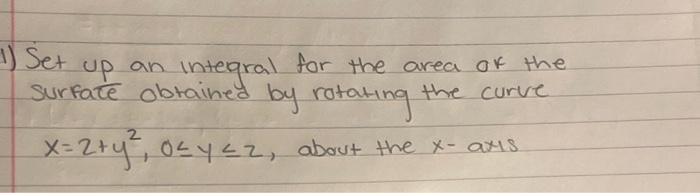 1) Set up an integral for the area of the
surface obtained by rotating the curve
x=2+y², 0≤y≤2, about the x-axis